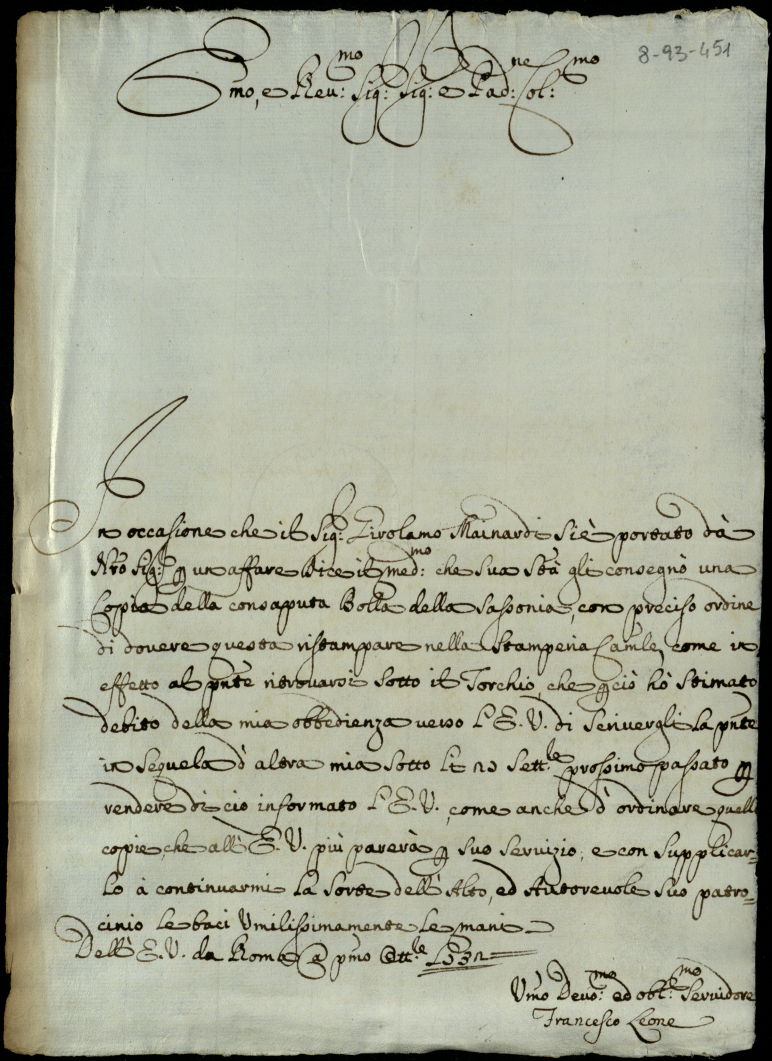 8-93-451
Emo, e Reu:mo Sig: Sig: e Pad:ne Col:mo
In occasione che il Sig: Girolamo Mainardi si è portato dà
Nro Sig: p un affare dice il med:mo che Sua Stà gli consegnò una
Copia della consaputa Bolla della Sassonia, con preciso ordine
di dovere questa ristampare nella Stamperia Camle, come in
effetto al pnte ritrovarsi sotto il Torchio, che p ciò hò stimato
debito della mia obbedienza verso l'E. V. di scrivergli la pnte
in sequela d'altra mia sotto li Sett:le prossimo passato p
rendere di ciò informato l'E. V., come anche d'ordinare quelle
copie, che all'E. V. più parerà p suo servizio; e con supplicar-
lo à continuarmi la sorte dell'Alto, ed Autorevole suo patro-
cinio le baci Umilissimamente le mani
Dell'E. V. da Roma @ pmo Ott:le
Vmo Devo:mo ed obl:mo Servidore
Francesco Leone